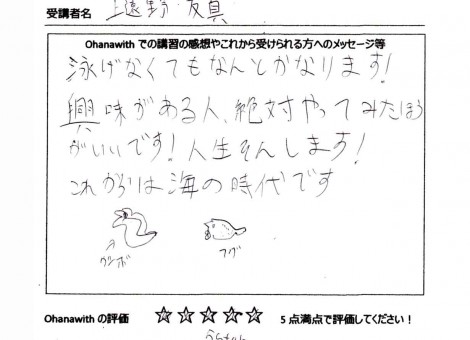 受講者名 上遠野 友真
Ohanawith での講習の感想やこれから受けられる方へのメッセージ等
泳げなくてもなんとかなります!
興味がある人、絶対やってみたほう
がいいです!人生そんします!
これからは海の時代です
ウツボ
フグ
Ohanawith の評価 ☆☆☆☆☆ 5点満点で評価してください!